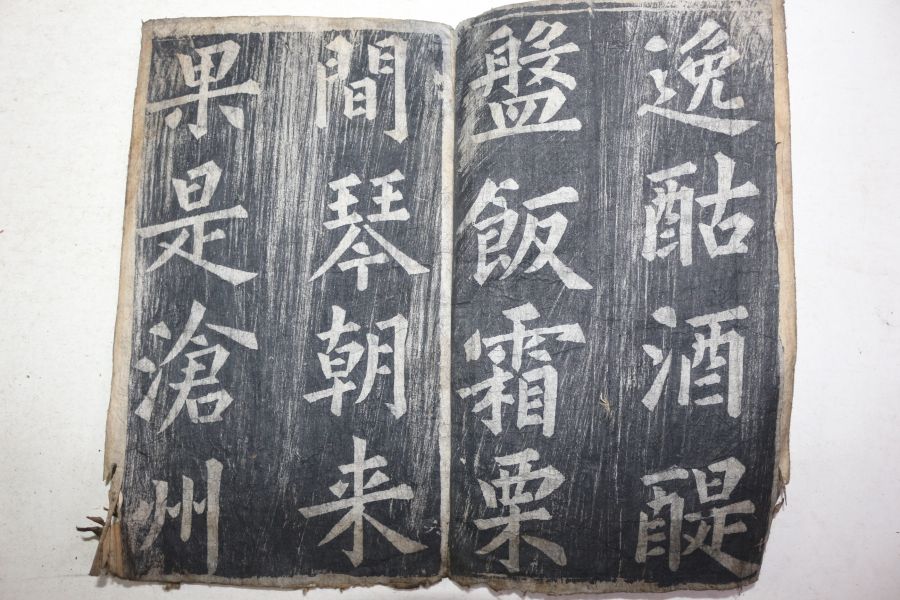 逸酤酒醍
盤飯霜栗
間琴朝来
果是滄州